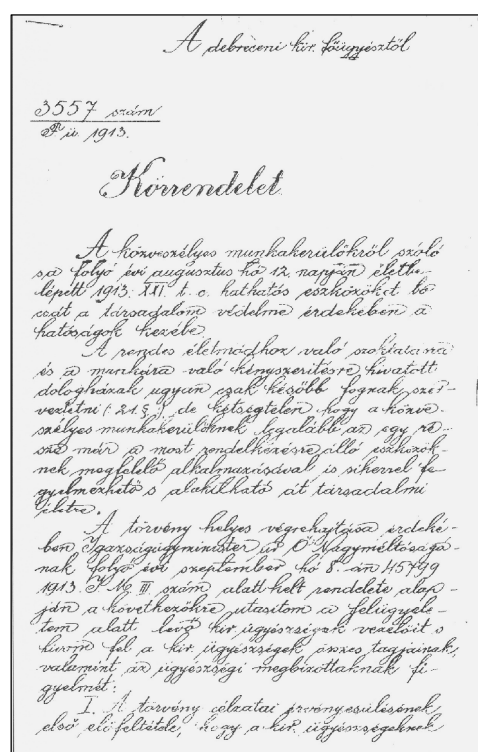 A debreceni kir. főügyésztől
3557 szám
Fü. 1913.
Körrendelet.
A közveszélyes munkakerülőkről szóló
s a folyó évi augusztus hó 12. napján életbe
lépett 1913. XXI. t. c. hathatós eszközöket bo
csát a társadalom védelme érdekében a
hatóságok kezébe.
A rendes életmódhoz való szoktatásra
és a munkára való kényszerítésre hivatott
dologházak ugyan csak később fognak szer-
veztetni (21. §.), de kétségtelen, hogy a közve-
szélyes munkakerülőknek legalább az egy ré-
sze már a most rendelkezésre álló eszközök-
nek megfelelő alkalmazásával is sikerrel fe-
gyelmezhető s alakítható át társadalmi
életre.
A törvény helyes végrehajtása érdeké-
ben Igazságügyminister úr Ő Nagyméltóságá-
nak folyó évi szeptember hó 8.-án 45799
1913. I. M. III. szám alatt kelt rendelete alap-
ján a következőkre utasítom a felügyele-
tem alatt levő kir. ügyészségek vezetőit s
hívom fel a kir. ügyészségek összes tagjainak,
valamint az ügyészségi megbízottaknak fi-
gyelmét:
I. A törvény céljai érvényesülésének
első előfeltétele, hogy a kir. ügyészségeknek